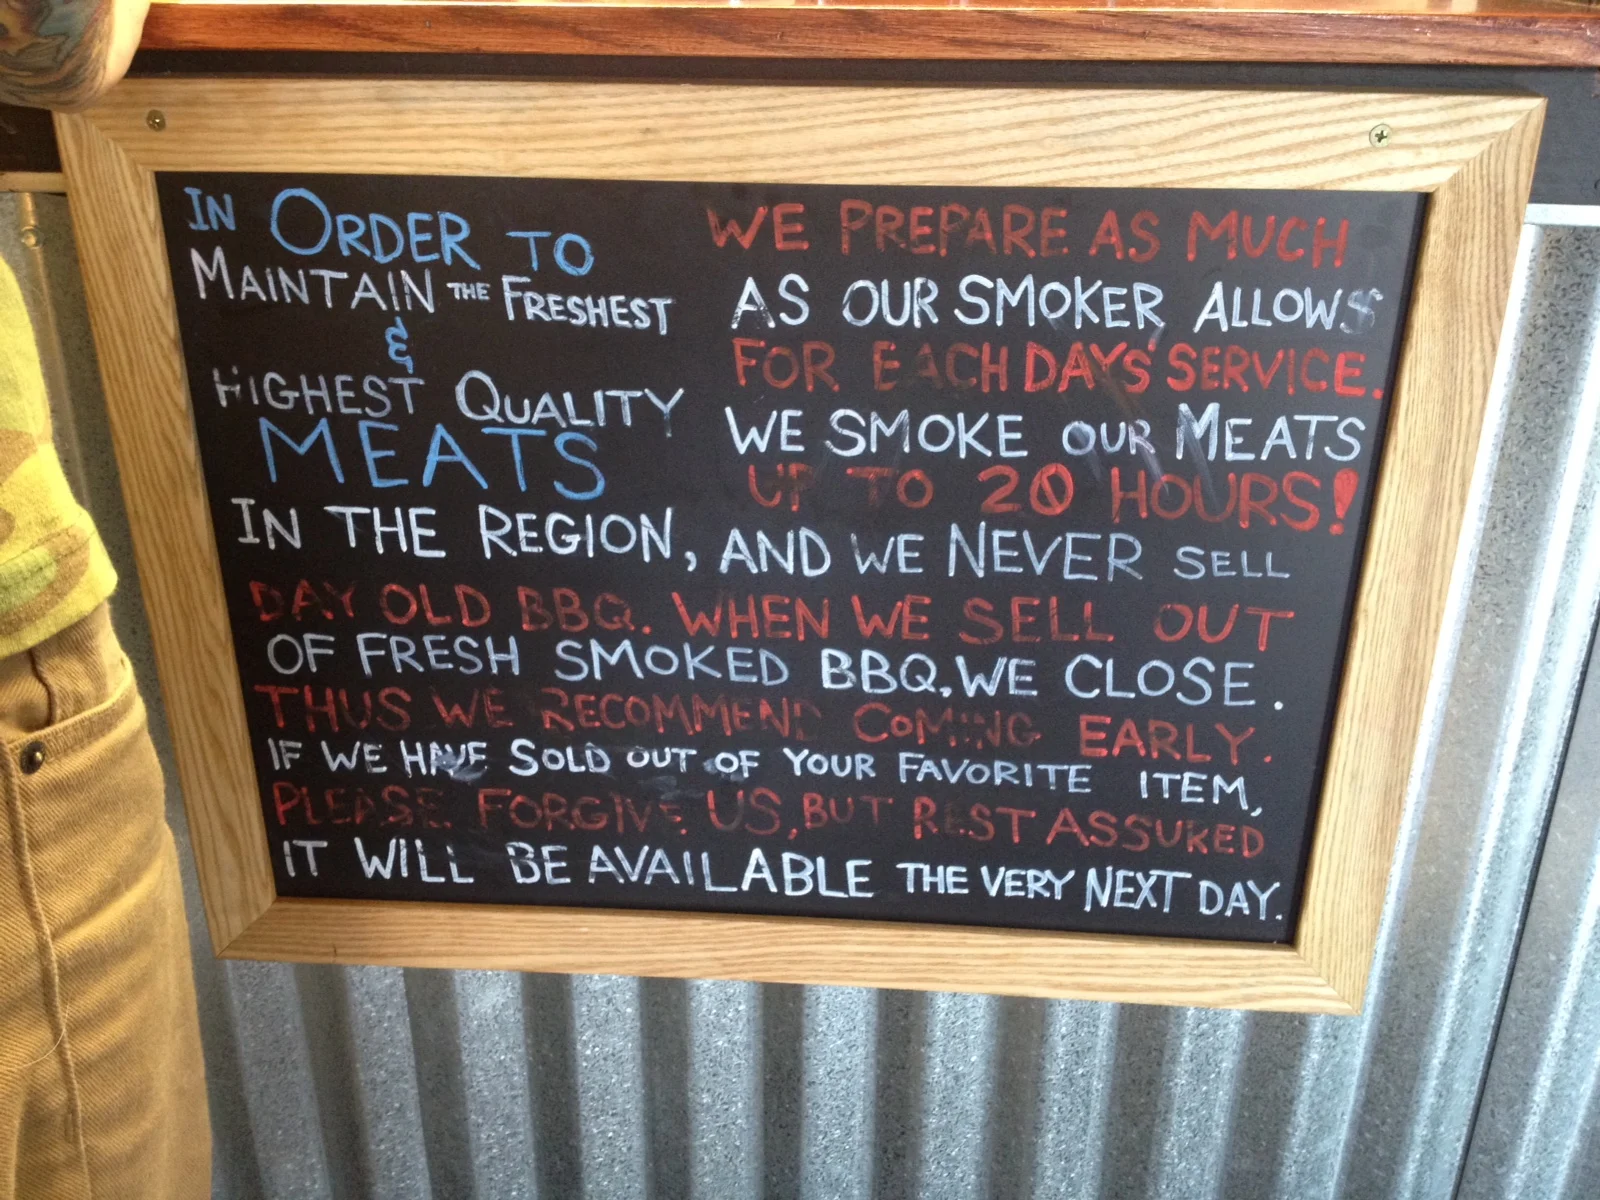 IN ORDER TO
MAINTAIN THE FRESHEST
&
HIGHEST QUALITY
MEATS
WE PREPARE AS MUCH
AS OUR SMOKER ALLOWS
FOR EACH DAYS SERVICE.
WE SMOKE OUR MEATS
UP TO 20 HOURS!
IN THE REGION, AND WE NEVER SELL
DAY OLD BBQ. WHEN WE SELL OUT
OF FRESH SMOKED BBQ, WE CLOSE.
THUS WE RECOMMEND COMING EARLY.
IF WE HAVE SOLD OUT OF YOUR FAVORITE ITEM,
PLEASE FORGIVE US, BUT REST ASSURED
IT WILL BE AVAILABLE THE VERY NEXT DAY.